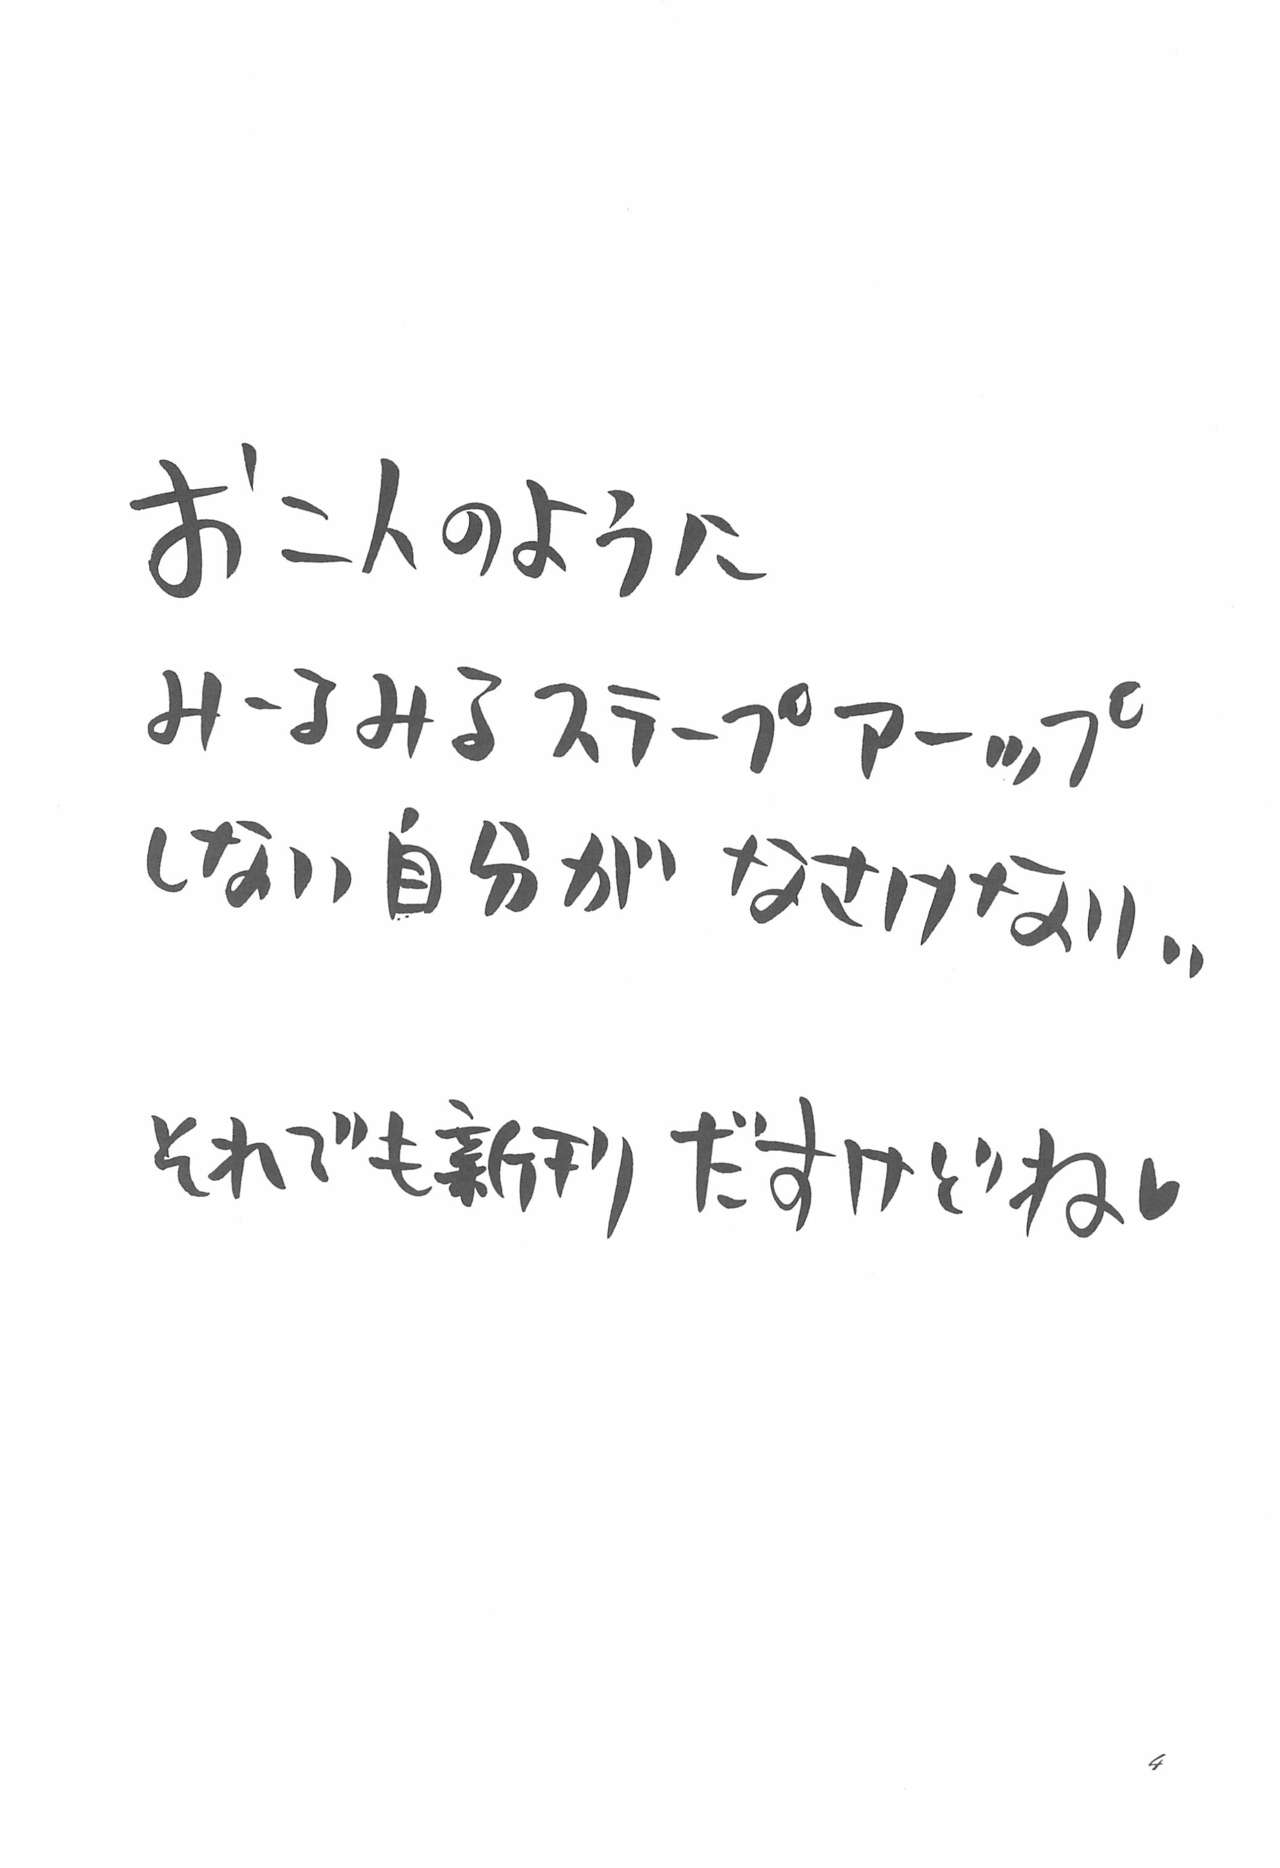 お二人のように
みーるみるステープアーップ
しない自分が なさけない、、
それでも新刊 だすけどね♥
4